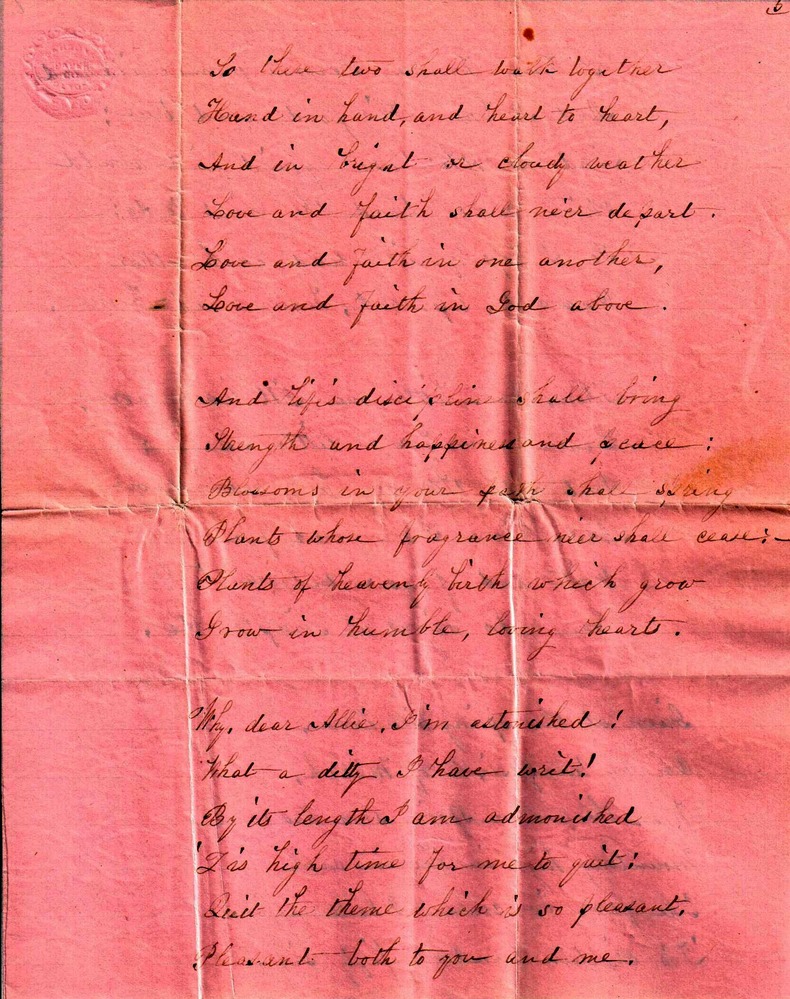 6
So these two shall walk together
Hand in hand, and heart to heart,
And in bright or cloudy weather
Love and faith shall ne'er depart.
Love and faith in one another,
Love and faith in God above.
And life's discipline shall bring
Strength and happiness and peace:
Blossoms in your path shall spring
Plants whose fragrance ne'er shall cease:—
Plants of heavenly birth which grow
Grow in humble, loving hearts.
Why, dear Allie, I'm astonished!
What a ditty I have writ!
By its length I am admonished
'Tis high time for me to quit:
Quit the theme which is so pleasant,
Pleasant both to you and me.